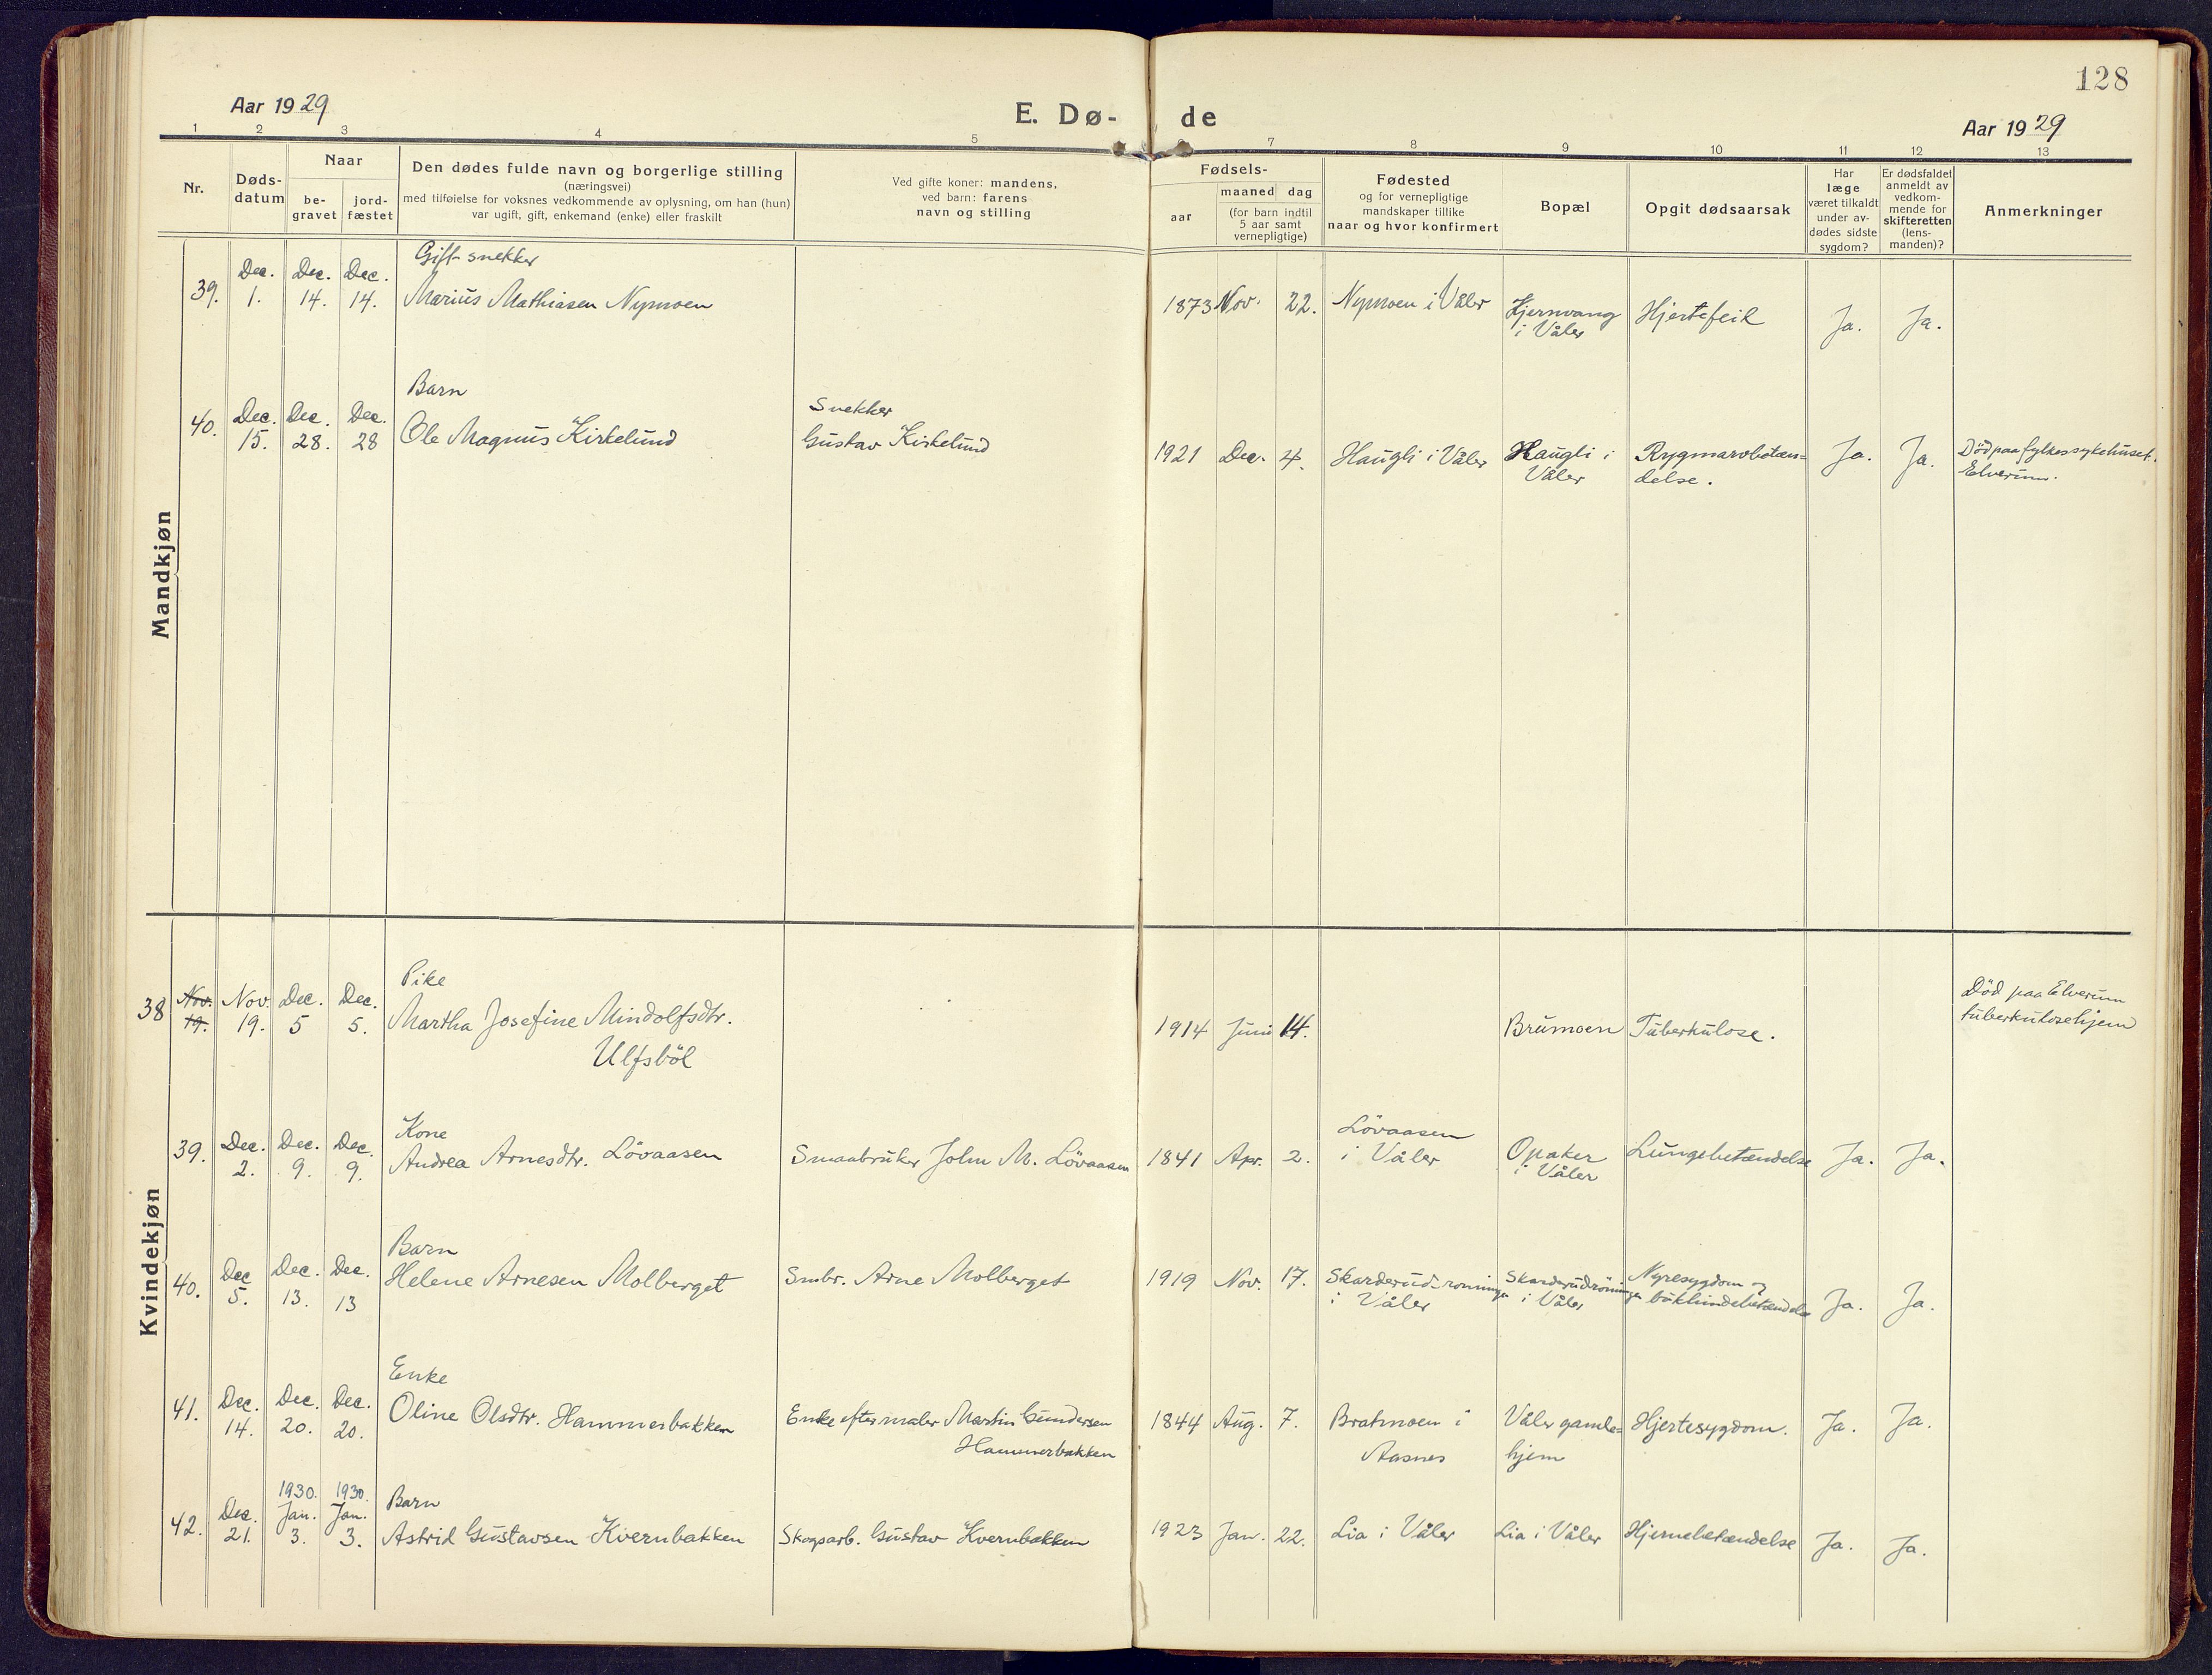 128
Aar 1929
E. Dø- de
Aar 1929
1 2 3 4 5 7 8 9 10 11 12 13
Nr.
Døds-
datum
Naar
be-
gravet
jord-
fæstet
Den dødes fulde navn og borgerlige stilling
(næringsvei)
med tilføielse for voksnes vedkommende av oplysning, om han (hun)
var ugift, gift, enkemand (enke) eller fraskilt
Ved gifte koner: mandens,
ved barn: farens
navn og stilling
Fødsels-
aar
maaned dag
(for barn indtil
5 aar samt
vernepligtige)
Fødested
og for vernepligtige
mandskaper tillike
naar og hvor konfirmert
Bopæl
Opgit dødsaarsak
Har
læge
været tilkaldt
under av-
dødes sidste
sygdom?
Er dødsfaldet
anmeldt av
vedkom-
mende for
skifteretten
(lens-
manden)?
Anmerkninger
Mandkjøn
Gift snekker
39. Dec. 1. Dec. 14. Dec. 14. Marius Mathiasen Nymoen 1873 Nov. 22. Nymoen i Våler Kjernvang Hjertefeil Ja. Ja.
i Våler
Barn
Snekker
40. Dec. 15. Dec. 28. Dec. 28 Ole Magnus Kirkelund Gustav Kirkelund 1921 Dec. 4. Haugli i Våler Haugli i Rygmarvbetæn= Ja. Ja. Död paa fylkessykehuset.
Våler delse. Elverum.
Kvindekjøn
Pike
38 Nov. 19. Nov. 19. Dec. 5 Dec. 5. Martha Josefine Mindolfsdtr. 1914 Juni 14. Brumoen Tuberkulose. Död paa Elverum
Ulfsböl tuberkulosehjem
Kone
Lövaasen
39. Dec. 2. Dec. 9. Dec. 9. Andrea Arnesdtr. Lövaasen Smaabruker John M. Lövaasen 1841 Apr. 2. i Våler Opaker Lungebetændelse Ja. Ja.
i Våler
Barn
40. Dec 5. Dec. 13. Dec. 13 Helene Arnesen Molberget Smbr. Arne Molberget 1919 Nov. 17. Skarderud-roninga Skarderudröningen Nyresygdom og
i Våler i Våler bukhindebetændelse Ja. Ja.
Enke
41. Dec. 14. Dec. 20. Dec. 20. Oline Olsdtr. Hammerbakken Enke efter maler Martin Gundersen 1844 Aug. 7. Bratmoen i Våler gamle= Hjertesygdom. Ja. Ja.
Hammerbakken Aasnes hjem
1930. 1930.
Barn
42. Dec. 21. Jan. 3. Jan. 3. Astrid Gustavsen Kvernbakken Skogsarb. Gustav Kvernbakken 1923 Jan. 22. Lia i Våler Lia i Våler Hjernebetændelse Ja. Ja.